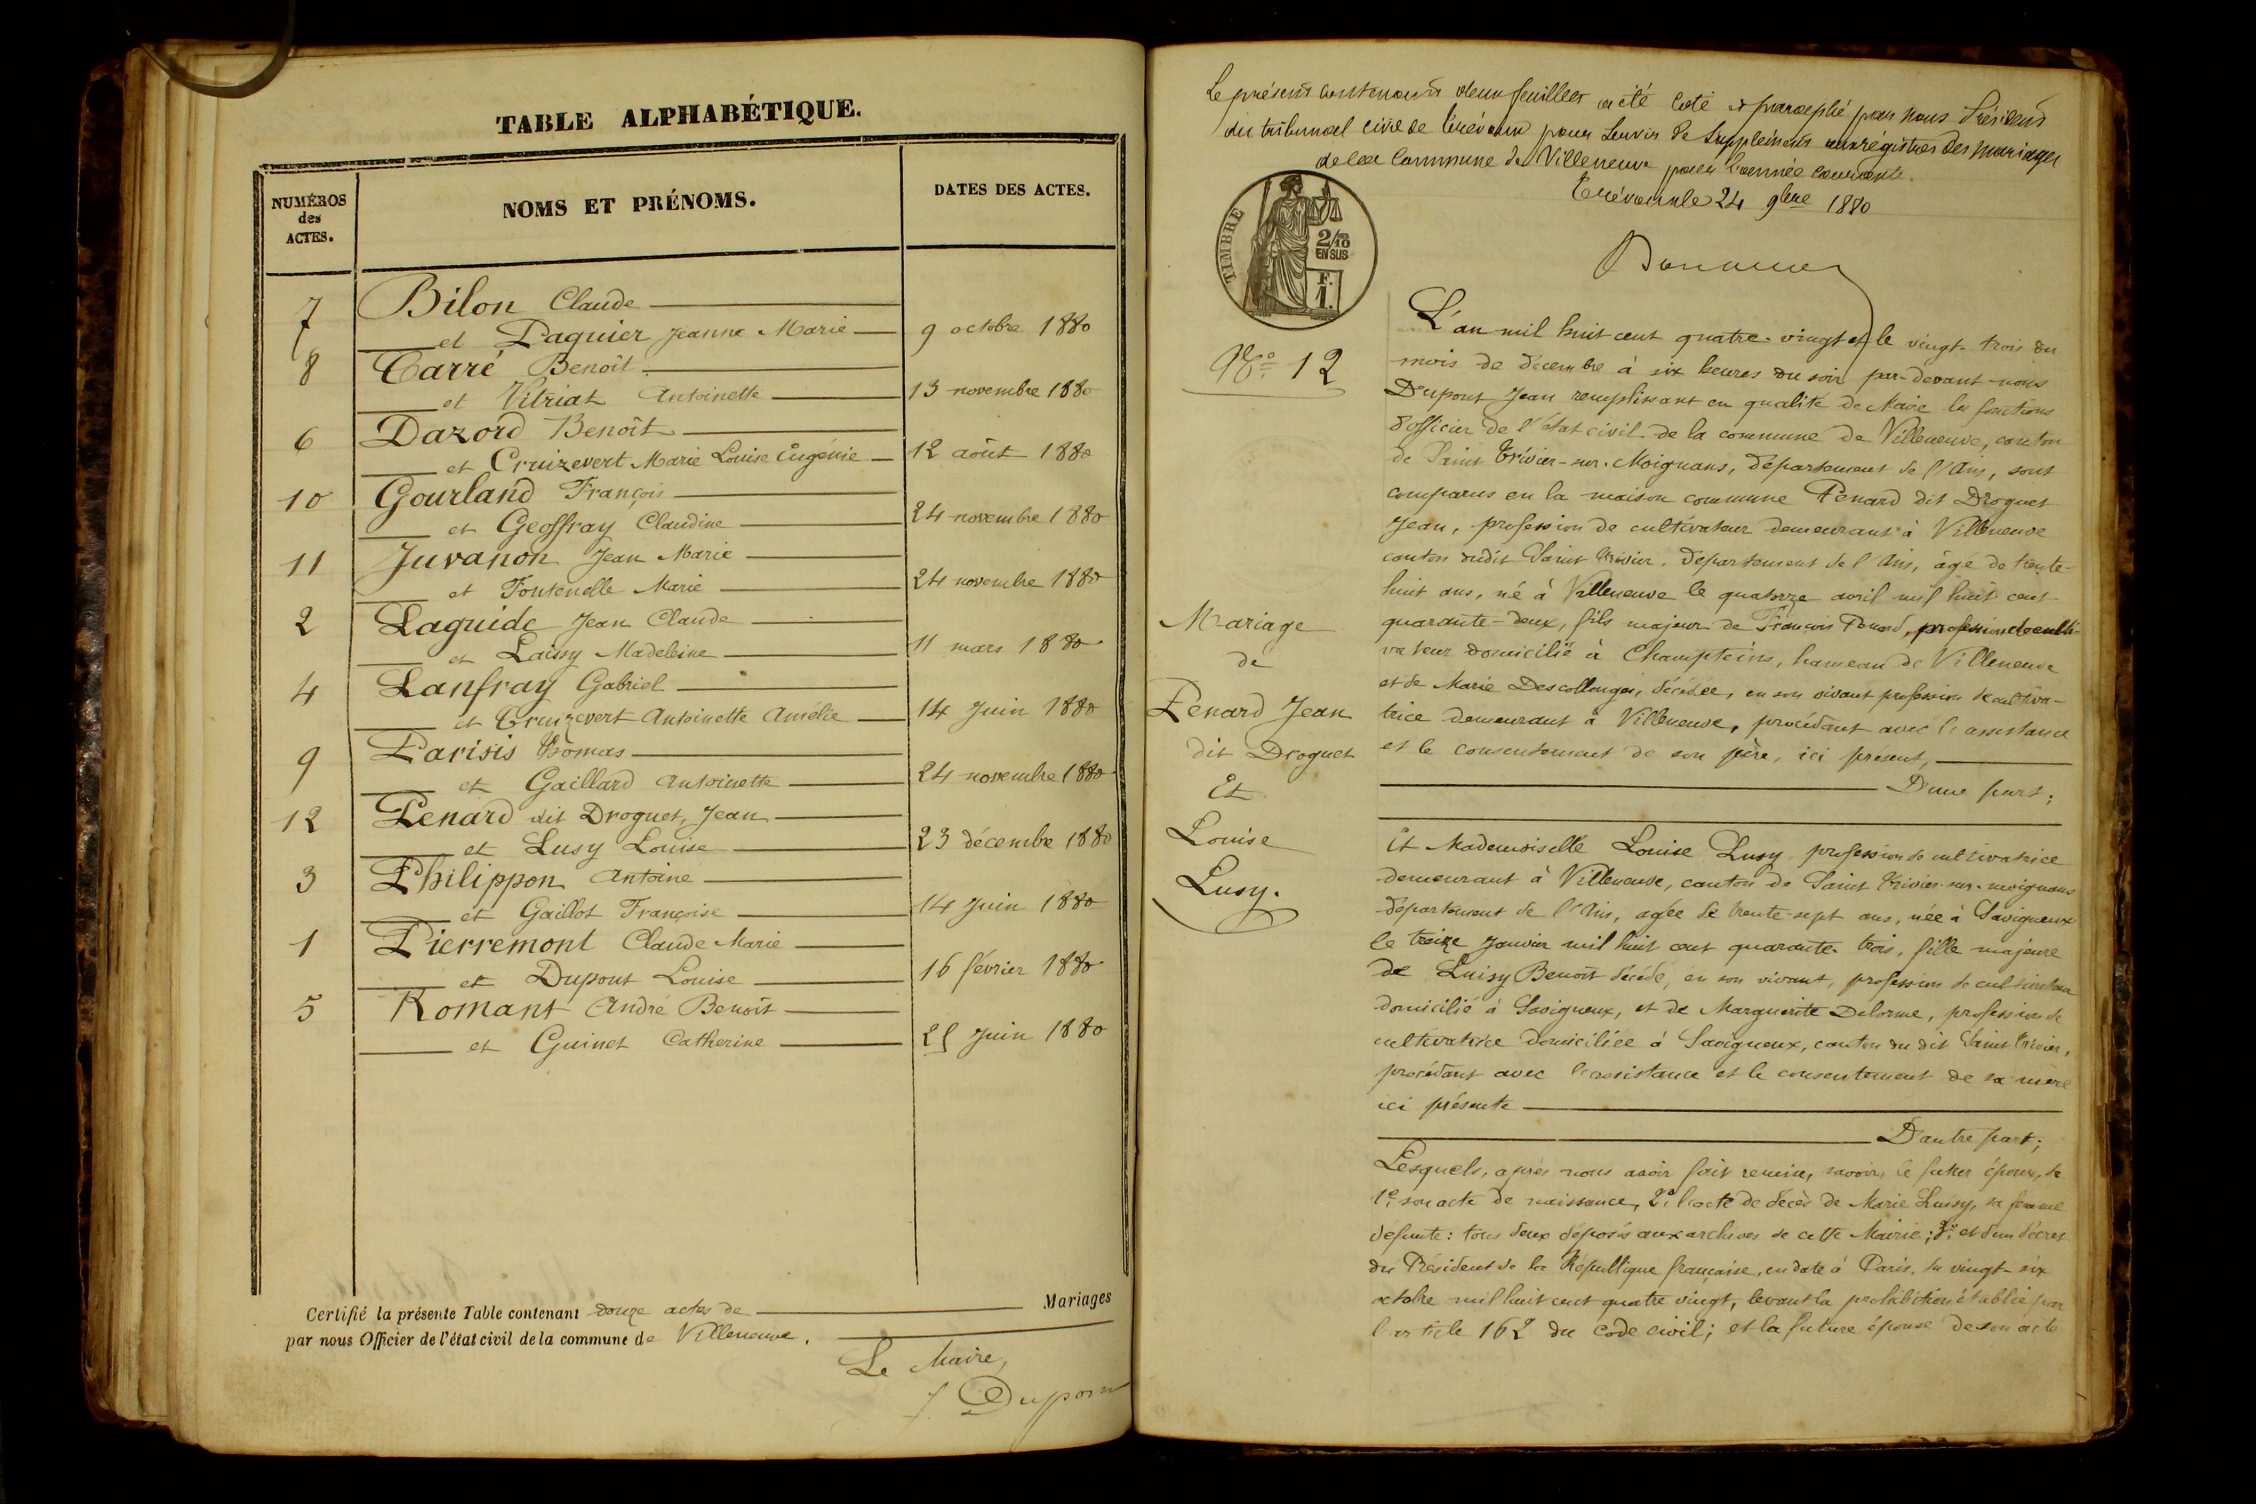 TABLE ALPHABÉTIQUE.
NUMÉROS
des
ACTES.
NOMS ET PRÉNOMS.
DATES DES ACTES.
7 Bilon Claude
et Paquier Jeanne Marie 9 octobre 1880
8 Carré Benoît
et Vitriat Antoinette 13 novembre 1880
6 Dazord Benoît
et Cruizevert Marie Louise Eugénie 12 août 1880
10 Gourland François
et Geoffray Claudine 24 novembre 1880
11 Juvanon Jean Marie
et Fontenelle Marie 24 novembre 1880
2 Laguide Jean Claude
et Laissy Madeleine 11 mars 1880
4 Lanfray Gabriel
et Cruizevert Antoinette Amélie 14 Juin 1880
9 Parisis Thomas
et Gaillard Antoinette 24 novembre 1880
12 Penard dit Droguet, Jean
et Lusy Louise 23 décembre 1880
3 Philippon Antoine
et Gaillot Françoise 14 Juin 1880
1 Pierremont Claude Marie
et Dupont Louise 16 février 1880
5 Romant André Benoît
et Guinet Catherine 25 Juin 1880
Certifié la présente Table contenant douze actes de Mariages
par nous Officier de l'état civil de la commune de Villeneuve.
Le Maire,
J. Dupont
Le présent contenant deux feuilles a été coté et paraphé par nous Président
du tribunal civil de Trévoux pour servir de supplément au régistre des mariages
de la Commune de Villeneuve pour l'année courante.
Trévoux le 24 9bre 1880
TIMBRE
2/10
EN SUS
F.
1.
No. 12
Mariage
de
Penard Jean
dit Droguet
Et
Louise
Lusy.
L'an mil huit cent quatre-vingt et le vingt-trois du
mois de décembre à six heures du soir par-devant-nous
Dupont Jean remplissant en qualité de Maire les fonctions
d'officier de l'état civil de la commune de Villeneuve, canton
de Saint Trivier-sur-Moignans, département de l'Ain, sont
comparus en la maison commune Penard dit Droguet
Jean, profession de cultivateur demeurant à Villeneuve
canton dudit Saint Trivier. Département de l'Ain, âgé de trente-
huit ans, né à Villeneuve le quatorze avril mil huit cent
quarante-deux, fils majeur de François Penard, profession de culti-
vateur domicilié à Champteins, hameau de Villeneuve
et de Marie Descollonges, décédée, en son vivant profession de cultiva-
trice demeurant à Villeneuve, procédant avec l'assistance
et le consentement de son père, ici présent,
D'une part;
Et Mademoiselle Louise Lusy profession de cultivatrice
demeurant à Villeneuve, canton de Saint Trivier-sur-moignans
département de l'Ain, agée de trente-sept ans, née à Savigneux
le treize Janvier mil huit cent quarante-trois, fille majeure
de Luisy Benoît décédé, en son vivant, profession de cultivateur
domicilié à Savigneux, et de Marguerite Delorme, profession de
cultivatrice domiciliée à Savigneux, canton du dit Saint Trivier,
procédant avec l'assistance et le consentement de sa mère
ici présente
D'autre part;
Lesquels, après nous avoir fait remise, savoir, le futur époux, de
1o. son acte de naissance, 2o. l'acte de décès de Marie Luisy, sa femme
défunte: tous deux déposés aux archives de cette Mairie; 3o. et d'un décret
du Président de la République française, en date à Paris, du vingt-six
octobre mil huit cent quatre vingt, levant la prohibition établie par
l'article 162 du code civil; et la future épouse de son acte